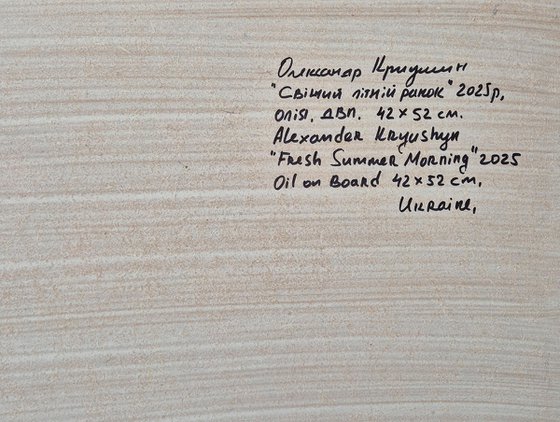 Олександр Кришин
"Свіжий літній ранок" 2025р,
олія, ДВП. 42 x 52 см.
Alexander Kryushyn
"Fresh Summer Morning" 2025
Oil on Board 42 x 52 cm,
Ukraine,